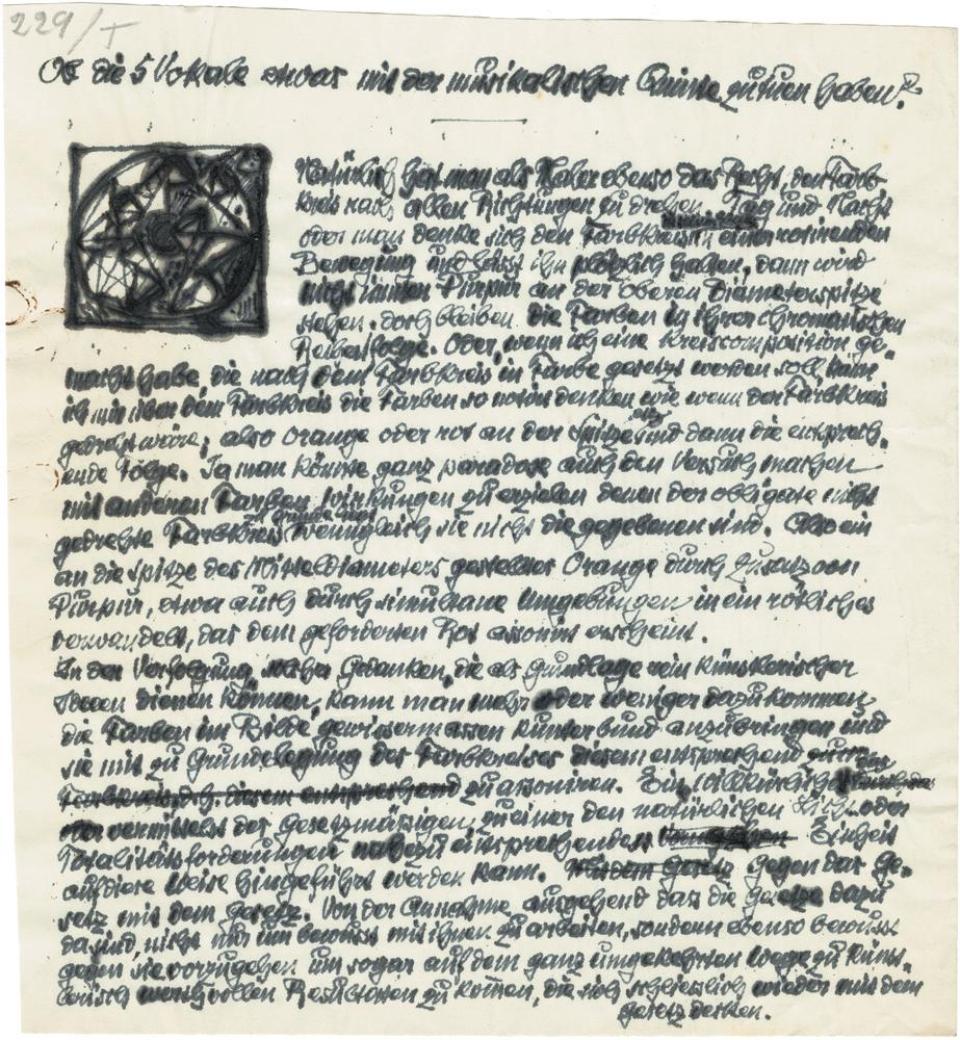 229/T
Ob die 5 Vokale etwas mit der musikalischen Quinte zu tuen haben?
Natürlich hat man als Maler ebenso das Recht, den Farb-
kreis nach allen Richtungen zu drehen. Tag und Nacht
oder man denke sich den Farbkreis in einer rotirenden
Bewegung und lässt ihn plötzlich halten, dann wird
nicht immer Purpur an der oberen Diameterspitze
stehen. doch bleiben die Farben in ihrer chromatischen
Reihenfolge. Oder, wenn ich eine Kreiscomposition ge-
macht habe, die nach dem Farbkreis in Farbe gesetzt werden soll, kann
ich mir über dem Farbkreis die Farben so notirt denken wie wenn der Farbkreis
gedreht wäre; also Orange oder rot an der Spitze etc und dann die entsprech-
ende Folge. Ja man könnte ganz paradoxe auch den Versuch machen
mit anderen Farben Wirkungen zu erzielen denen der obligate nicht
gedrehte Farbkreis wenngleich sie nicht die gegebenen sind. Also ein
an die Spitze des Mitteldiameters gestelltes Orange durch Zusatz von
Purpur, etwa auch durch simultane Umgebungen in ein rötliches
verwandelt, das dem geforderten Rot assonirt erscheint.
In der Verfolgung solcher Gedanken, die als Grundlage rein künstlerischer
Ideen dienen können, kann man mehr oder weniger dazu kommen
die Farben im Bilde gewissermassen kunterbund anzubringen und
sie mit zu Grundelegung des Farbkreises diesem entsprechend
zu assoniren. Ein willkürliches
vermittelst der gesetzmäsigen zu einer den natürlichen Licht- oder
Totalitätsforderungen entsprechenden Einheit
auf diese Weise hingeführt werden kann. Gegen das Ge-
setz mit dem Gesetz. Von der Annahme ausgehend dass die Gesetze dazu
da sind, nicht nur um bewusst mit ihnen zu arbeiten, sondern ebenso bewusst
gegen sie vorzugehen um sogar auf dem ganz umgekehrten Wege zu künst-
lerisch wertvollen Resultaten zu kommen, die sich schliesslich wieder mit dem
Gesetz decken.